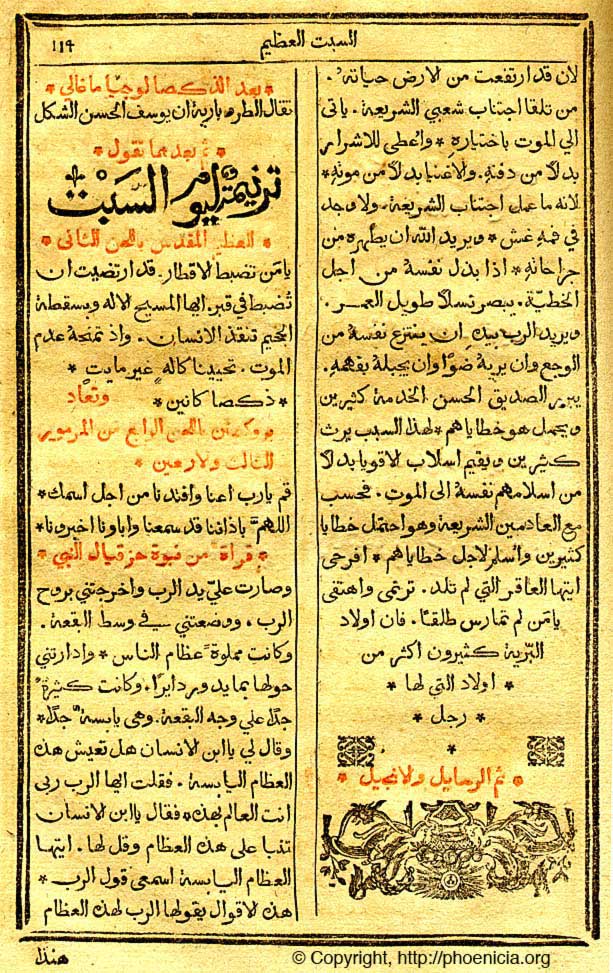 السبت العظيم
١١٩
لان قد ارتفعت من الارض حياته .
من تلقا اجتناب شعبي الشريعة . ياتي
الي الموت باختياره * واعطي للاشرار
بدلاً من دفنه . والاغنيا بدلاً من موته *
لانه ما عمل اجتناب الشريعة . ولا وجد
في فمه غش * ويريد الله ان يطهره من
جراحاته * اذا بذل نفسه من اجل
الخطيّة . يبصر نسلاً طويل العمر .
ويريد الرب بيده ان ينتزع نفسه من
الوجع وان يريه ضوًا وان يجبله بفهمه .
يبرر الصديق الحسن الخدمة كثيرين
ويحمل هو خطاياهم * لهذا السبب يرث
كثيرين ويقيم اسلاب الاقويا بدلاً
من اسلامهم نفسه الى الموت . فحسب
مع العادمين الشريعة وهو احتمل خطايا
كثيرين واسلم لاجل خطاياهم * افرحي
ايتها العاقر التي لم تلد . ترنمي واهتفي
يا من لم تمارس طلقًا . فان اولاد
البّرية كثيرون اكثر من
* اولاد التي لها *
* رجل *
*
* ثم الرسايل ولانجيل *
* بعد الذكصالوجيا ما قالي *
تقال الطروبارية ان يوسف الحسن الشكل
* ثم بعدها نقول *
ترنيمة ليوم السبت
* العظيم المقدس باللحن الثاني *
يا من تضبط الاقطار . قد ارتضيت ان
تُضبط في قبر . ايها المسيح الاله وبسقطة
الجحيم تنقذ الانسان . واذ تمنحه عدم
الموت . تحيينا كاله غير مايت *
* ذكصا كانين * وتعاد
بروكيمنن باللحن الرابع من المزمور
الثالث ولاربعين *
قم يارب اعنا وافتدنا من اجل اسمك *
اللهمّ باذاننا قد سمعنا واباونا اخبرونا *
* قراة من نبوة حزقيال النبي *
وصارت عليّ يد الرب واخرجتني بروح
الرب . ووضعتني في وسط البقعة .
وكانت مملوة عظام الناس * وادارتني
حولها بما يدور دايرًا . وكانت كثيرة
جدًا علي وجه البقعة . وهي يابسة جدًا *
وقال لي ياابن الانسان هل تعيش هذه
العظام اليابسة . فقلت ايها الرب ربي
انت العالم بهذه * فقال ياابن لانسان
تنبا على هذه العظام وقل لها . ايتها
العظام اليابسة اسمعي قول الرب *
هذه لاقوال يقولها الرب لهذه العظام
هنذا
© Copyright, http://phoenicia.org